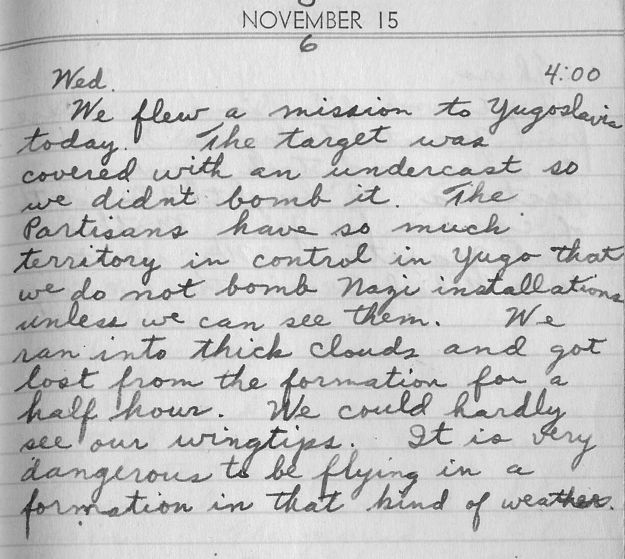 NOVEMBER 15
6
Wed. 4:00
We flew a mission to Yugoslavia
today. The target was
covered with an undercast so
we didn't bomb it. The
Partisans have so much
territory in control in Yugo that
we do not bomb Nazi installations
unless we can see them. We
ran into thick clouds and got
lost from the formation for a
half hour. We could hardly
see our wingtips. It is very
dangerous to be flying in a
formation in that kind of weather.